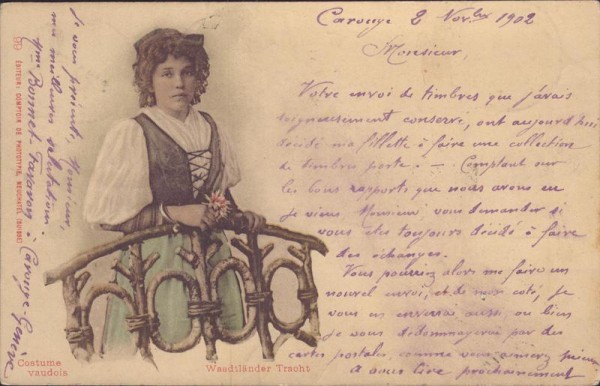 Carouge 2 Nov.bre 1902
Monsieur,
Votre envoi de timbres que j'avais
soigneusement conservé, ont aujourd'hui
décidé ma fillette à faire une collection
de timbres poste. — Comptant sur
les bons rapports que nous avons eu
je viens Monsieur vous demander si
vous êtes toujours décidé à faire
des échanges.
Vous pourriez alors me faire un
nouvel envoi, et de mon coté, je
vous en enverrai aussi, ou bien
je vous dédommagerai par des
cartes postales, comme vous aimerez mieux
à vous lire prochainement
Je vous présente, Monsieur,
mes meilleures salutations.
Mme Bonnet- à Carouge-Genève
99 ÉDITEUR: COMPTOIR DE PHOTOTYPIE, NEUCHATEL (SUISSE)
Costume
vaudois
Waadtländer Tracht